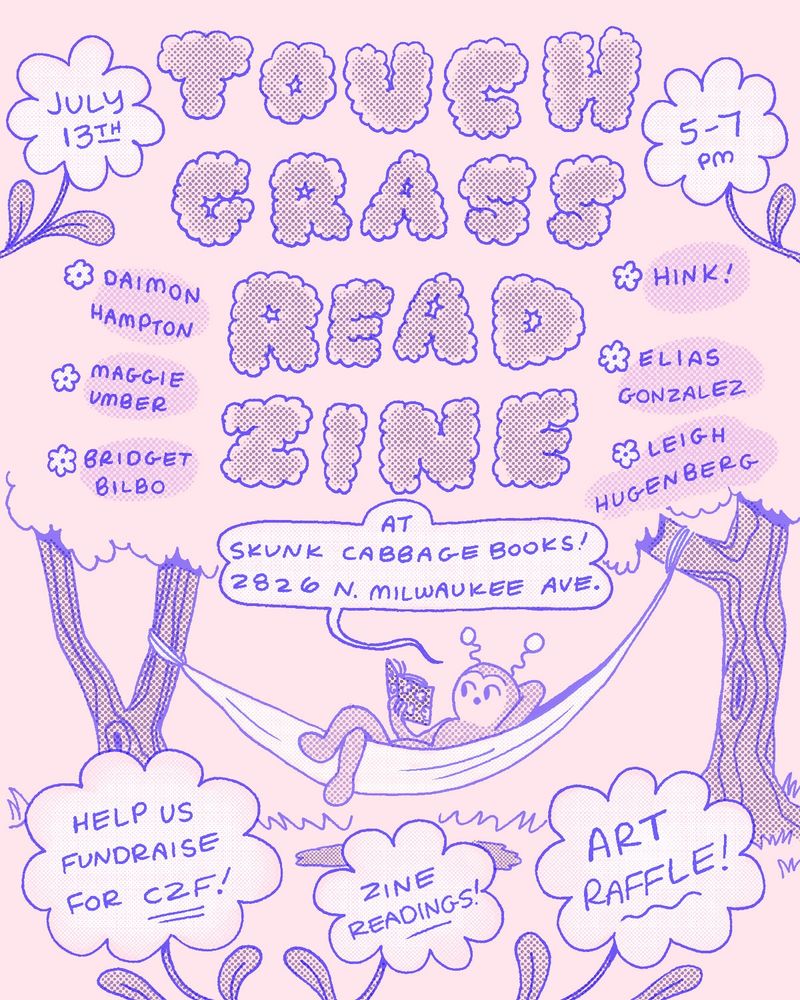 TOUCH
GRASS
READ
ZINE
JULY
13TH
5-7
pm
DAIMON
HAMPTON
MAGGIE
UMBER
BRIDGET
BILBO
HINK!
ELIAS
GONZALEZ
LEIGH
HUGENBERG
AT
SKUNK CABBAGE BOOKS!
2826 N. MILWAUKEE AVE.
HELP US
FUNDRAISE
FOR CZF!
ZINE
READINGS!
ART
RAFFLE!